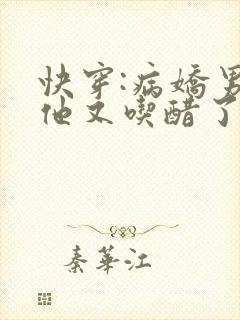 快穿:病嬌男
他又喫醋了
秦華江